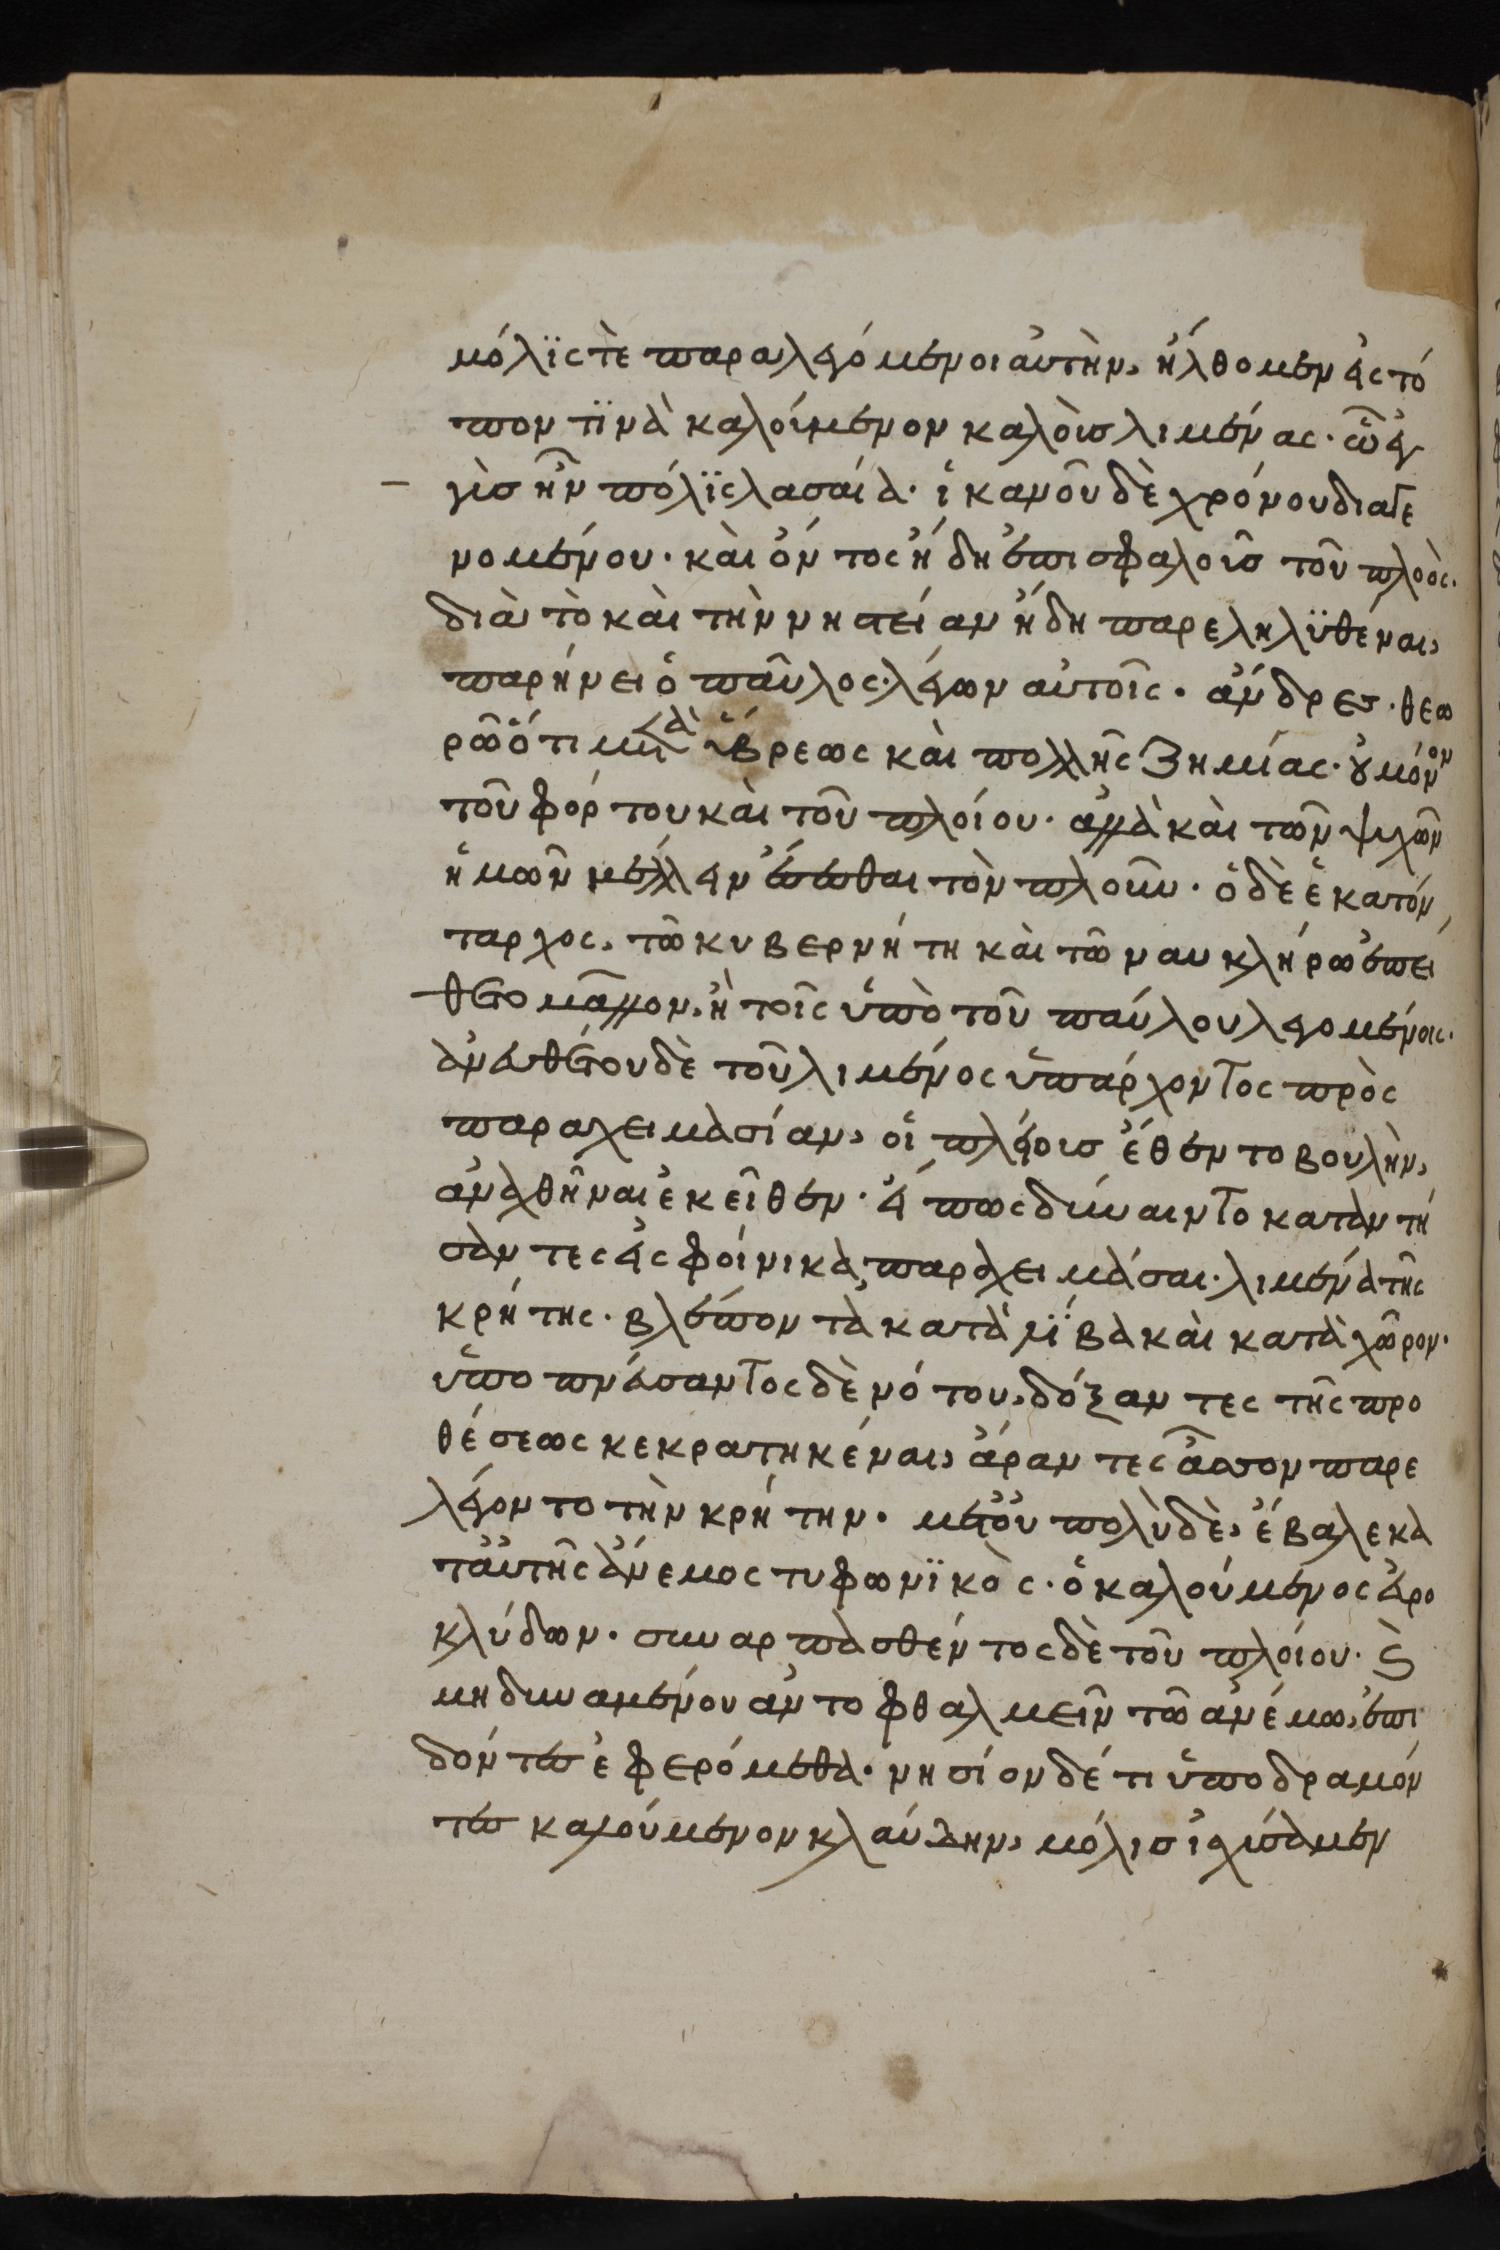 μόλϊς τὲ παραλεγόμενοι αὐτὴν, ἤλθομεν εἰς τό
πον τϊνὰ καλούμενον καλοὺσ λιμένας· ὧ ἐγ
γὺσ ἦν πόλϊς λασαία· ἱκανοῦ δὲ χρόνου διαγε
νομένου· καὶ ὄντος ἤδη ἐπισφαλοῦσ τοῦ πλοὸς·
διὰ τὸ καὶ τὴν νηστείαν ἤδη παρεληλϋθέναι,
παρήνει ὁ παῦλος λέγων αὐτοῖς· ἄνδρεσ· θεω
ρῶ ὅτι μετὰ ὕβρεως καὶ πολλῆς ζημίας· οὐ μόνον
τοῦ φόρτου καὶ τοῦ πλοίου· ἀλλὰ καὶ τῶν ψυχῶν
ἡμῶν μέλλειν ἔσεσθαι τὸν πλοῦν· ὁ δὲ ἑκατόν
ταρχος, τῶ κυβερνήτη καὶ τῶ ναυκλήρω ἐπεί
θετο μᾶλλον, ἢ τοῖς ὑπὸ τοῦ παύλου λεγομένοις·
ἀνευθέτου δὲ τοῦ λιμένος ὑπάρχοντος πρὸς
παραχειμασίαν, οἱ πλείουσ ἔθεντο βουλὴν,
ἀναχθῆναι ἐκεῖθεν· εἴ πως δύναιντο καταντή
σαντες εἰς φοίνικα παραχειμάσαι· λιμένα τῆς
κρήτης· βλέποντα κατὰ λϊβα καὶ κατὰ χῶρον·
ὑποπνεύσαντος δὲ νότου, δόξαντες τῆς προ
θέσεως κεκρατηκέναι, ἄραντες ἆσσον παρε
λέγοντο τὴν κρήτην· μετ' οὐ πολὺ δὲ, ἔβαλε κα
τ' αὐτῆς ἄνεμος τυφωνϊκὸς· ὁ καλούμενος εὐρο
κλύδων· συναρπασθέντος δὲ τοῦ πλοίου· καὶ
μὴ δυναμένου ἀντοφθαλμεῖν τῶ ἀνέμω, ἐπι
δόντεσ ἐφερόμεθα· νησίον δέ τι ὑποδραμόν
τεσ καλούμενον κλαύδην, μόλισ ἰσχύσαμεν